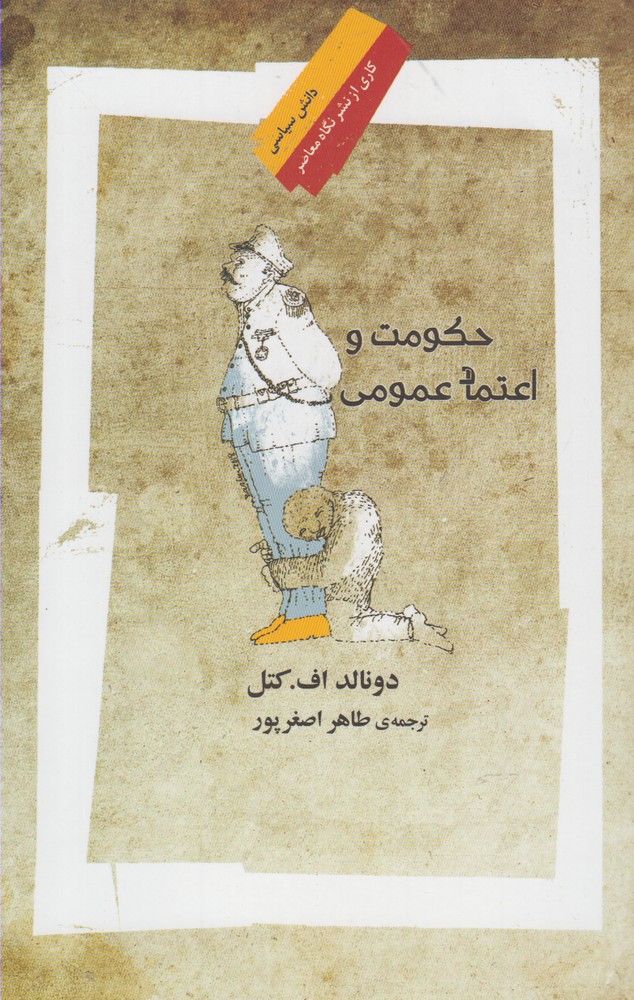 دانش سیاسی
کاری از نشر نگاه معاصر
حکومت و
اعتماد عمومی
دونالد اف. کتل
ترجمه‌ی طاهر اصغرپور